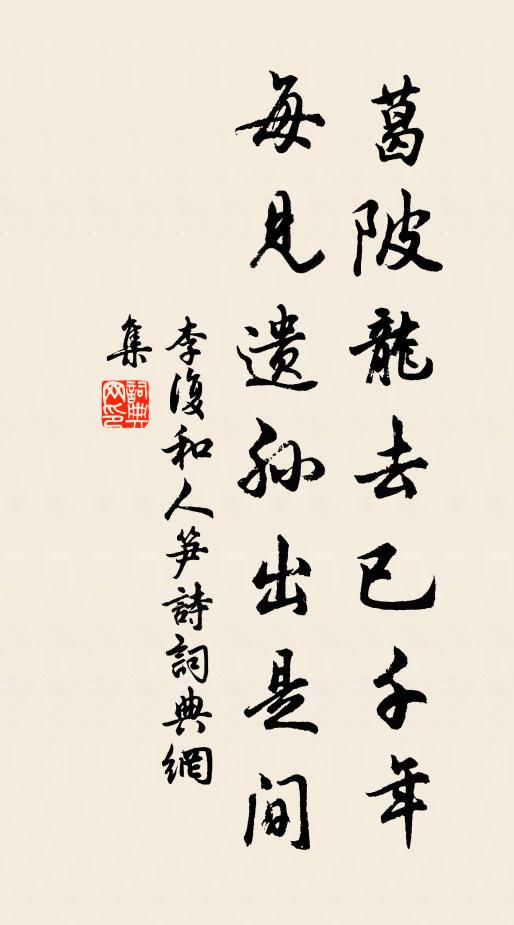 葛陂龍去已千年
每見遺孫出是間
李復和人笋詩詞典網
集
詞典網印